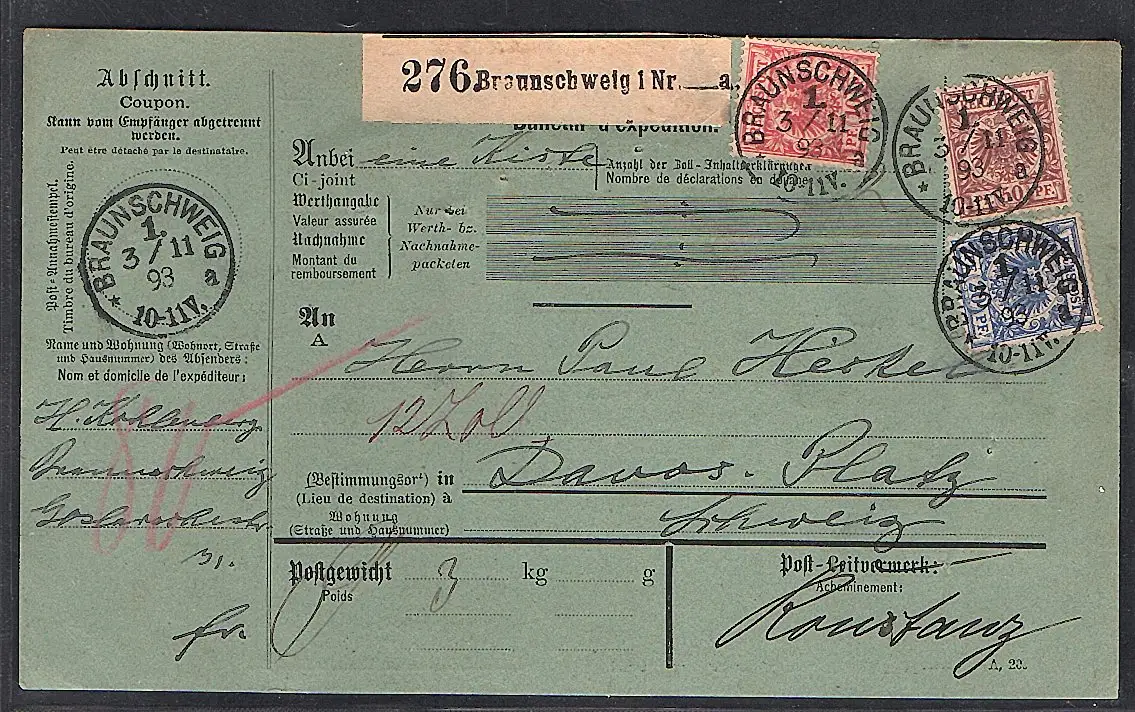 Abschnitt.
Coupon.
Kann vom Empfänger abgetrennt
werden.
Peut être détaché par le destinataire.
Post-Annahmestempel.
Timbre du bureau d'origine.
BRAUNSCHWEIG
1.
3/11
93
* 10-11V. a
Name und Wohnung (Wohnort, Straße
und Hausnummer) des Absenders:
Nom et domicile de l'expéditeur:
H.
Braunschweig
31.
fr.
276 Braunschweig 1 Nr. a.
Bulletin d'expédition.
Anbei eine Kiste
Ci-joint
Anzahl der Zoll-Inhaltserklärungen
Nombre de déclarations en douane
Werthangabe
Valeur assurée
Nachnahme
Montant du
remboursement
Nur bei
Werth- bz.
Nachnahme-
packeten
BRAUNSCHWEIG
1.
3/11
93
10-11V. a
BRAUNSCHWEIG
1.
3/11
93
* 10-11V. a
50 PF.
BRAUNSCHWEIG
1.
3/11
93
* 10-11V. a
20 PF
An
A
Herrn Paul
12 Zoll
(Bestimmungsort) in Davos-Platz
(Lieu de destination) à
Wohnung Schweiz
(Straße und Hausnummer)
Postgewicht 3 kg g
Poids
Post-Leitvermerk:
Acheminement:
Konstanz